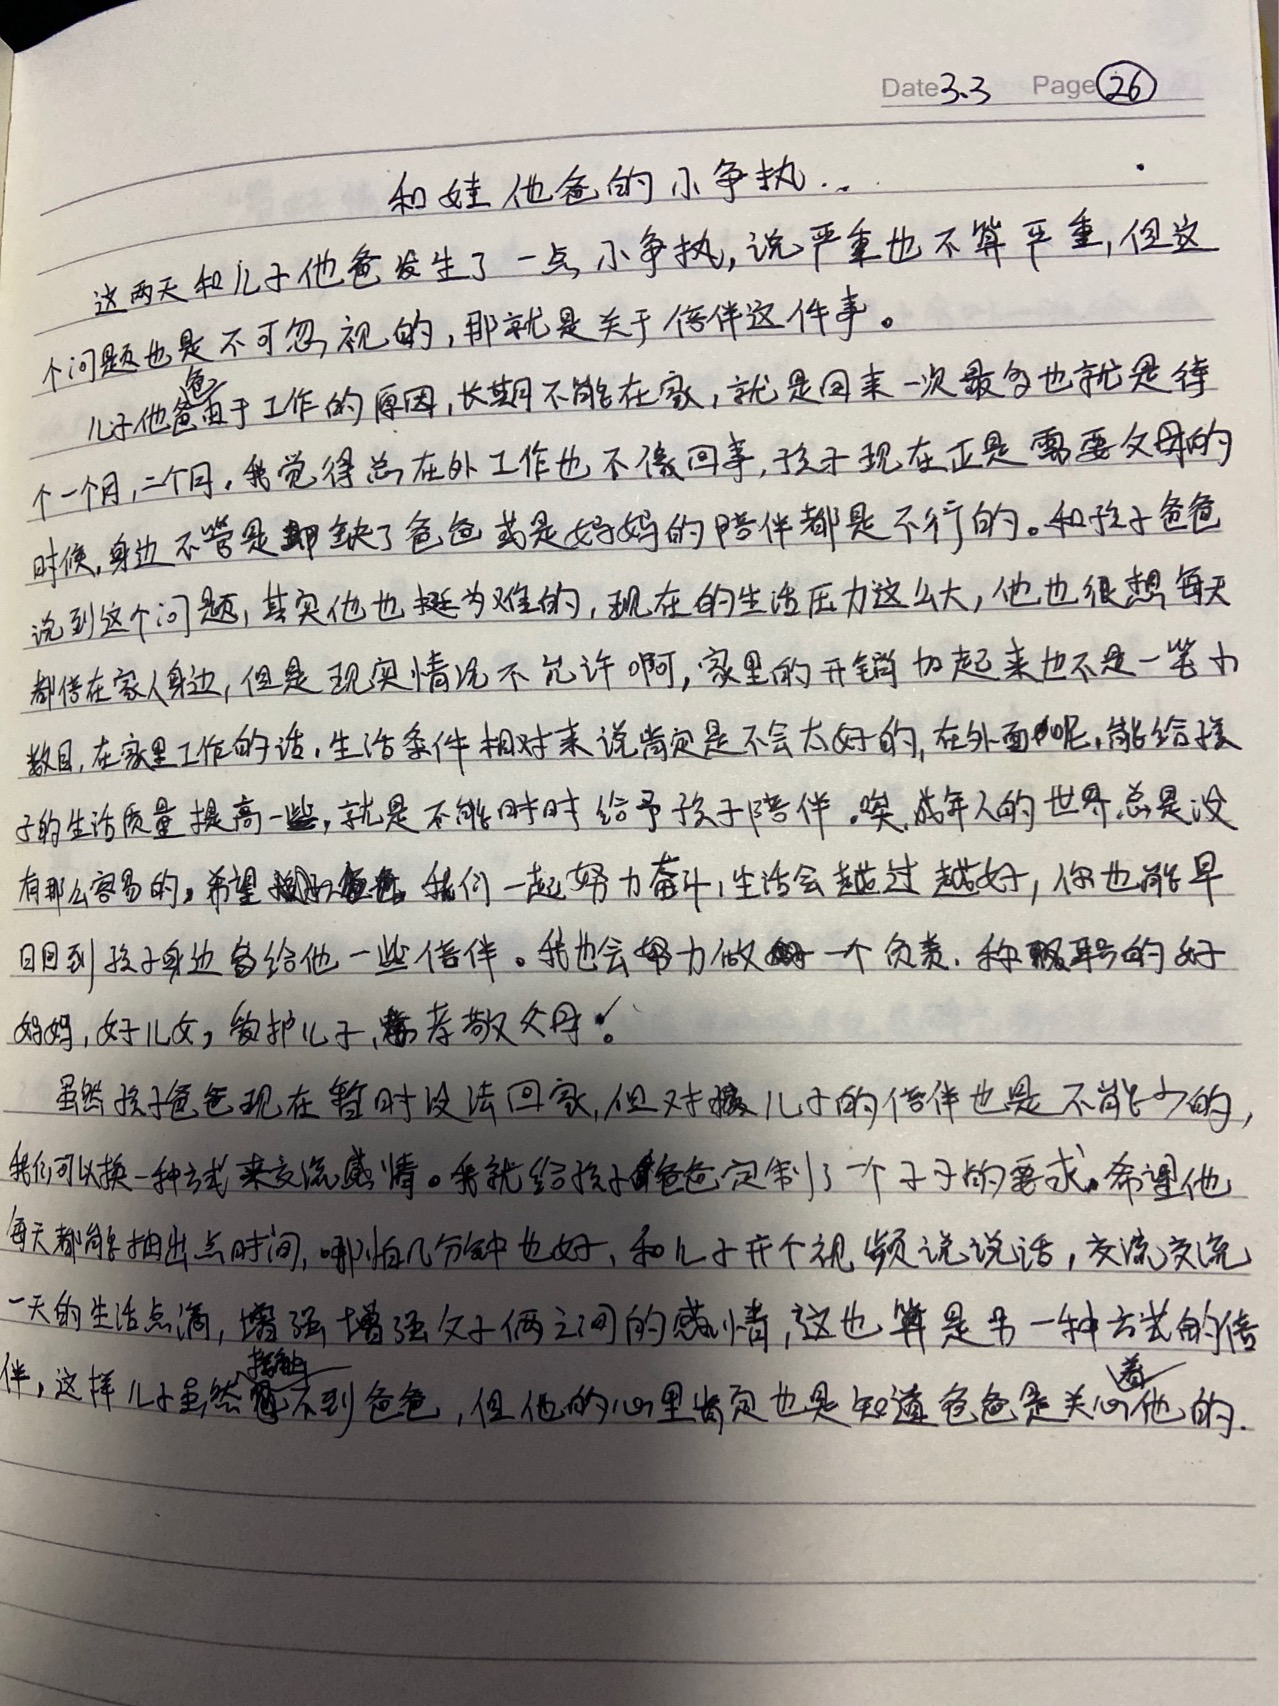 Date 3.3 Page 26
和娃他爸的小争执..
这两天和儿子他爸发生了一点小争执,说严重也不算严重,但这
个问题也是不可忽视的,那就是关于倍伴这件事。
儿子他爸爸由于工作的原因,长期不能在家,就是回来一次最多也就是待
个一个月,二个月。我觉得总在外工作也不像回事,孩子现在正是需要父母的
时候,身边不管是缺了爸爸或是妈妈的陪伴都是不行的。和孩子爸爸
说到这个问题,其实他也挺为难的,现在的生活压力这么大,他也很想每天
都倍在家人身边,但是现实情况不允许啊,家里的开销加起来也不是一笔小
数目,在家里工作的话,生活条件相对来说肯定是不会太好的,在外面呢,能给孩
子的生活质量提高一些,就是不能时时给予孩子陪伴。唉,成年人的世界总是没
有那么容易的。希望我们一起努力奋斗,生活会越过越好,你也能早
日回到孩子身边多给他一些倍伴。我也会努力做一个负责、称职的好
妈妈,好儿女,爱护儿子,孝敬父母!
虽然孩子爸爸现在暂时没法回家,但对儿子的倍伴也是不能少的,
我们可以换一种方式来交流感情。我就给孩子爸爸定制了一个子子的要求。希望他
每天都能抽出点时间,哪怕几分钟也好,和儿子开个视频说说话,交流交流
一天的生活点滴,增强增强父子俩之间的感情,这也算是另一种方式的倍
伴,这样儿子虽然接触不到爸爸,但他的心里肯定也是知道爸爸是关心着他的.